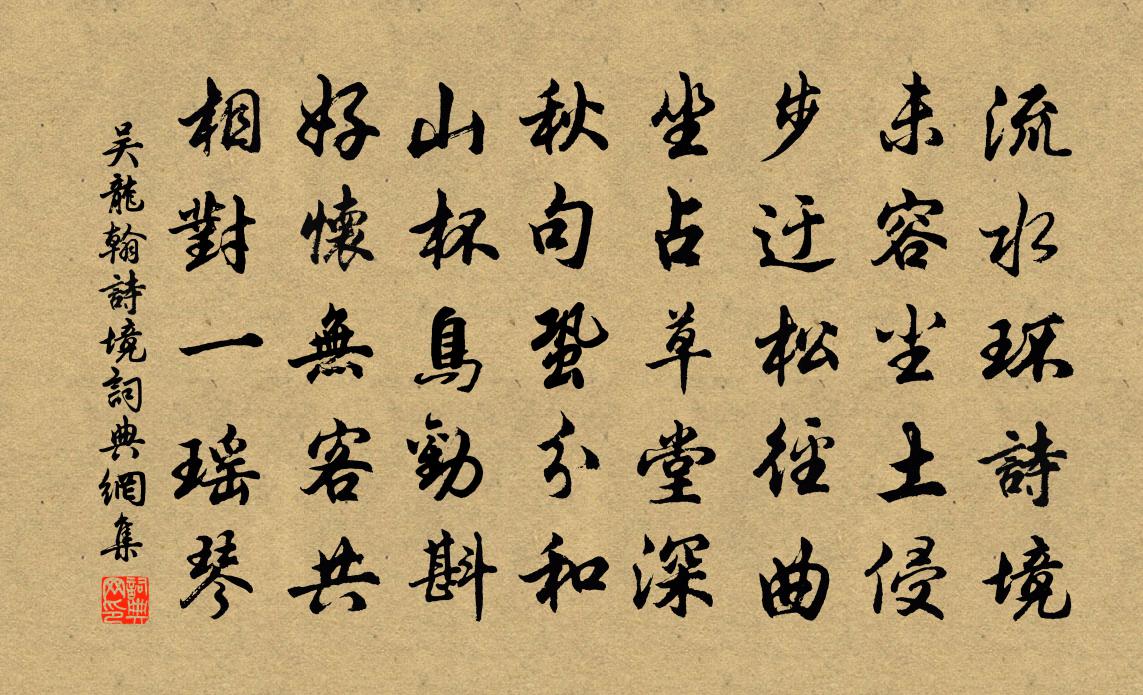 流水环詩境
未容尘土侵
步迂松徑曲
坐占草堂深
秋句蛩分和
山杯鳥勸斟
好懷無客共
相對一瑶琴
吴龍翰詩境詞典網集
詞典网印